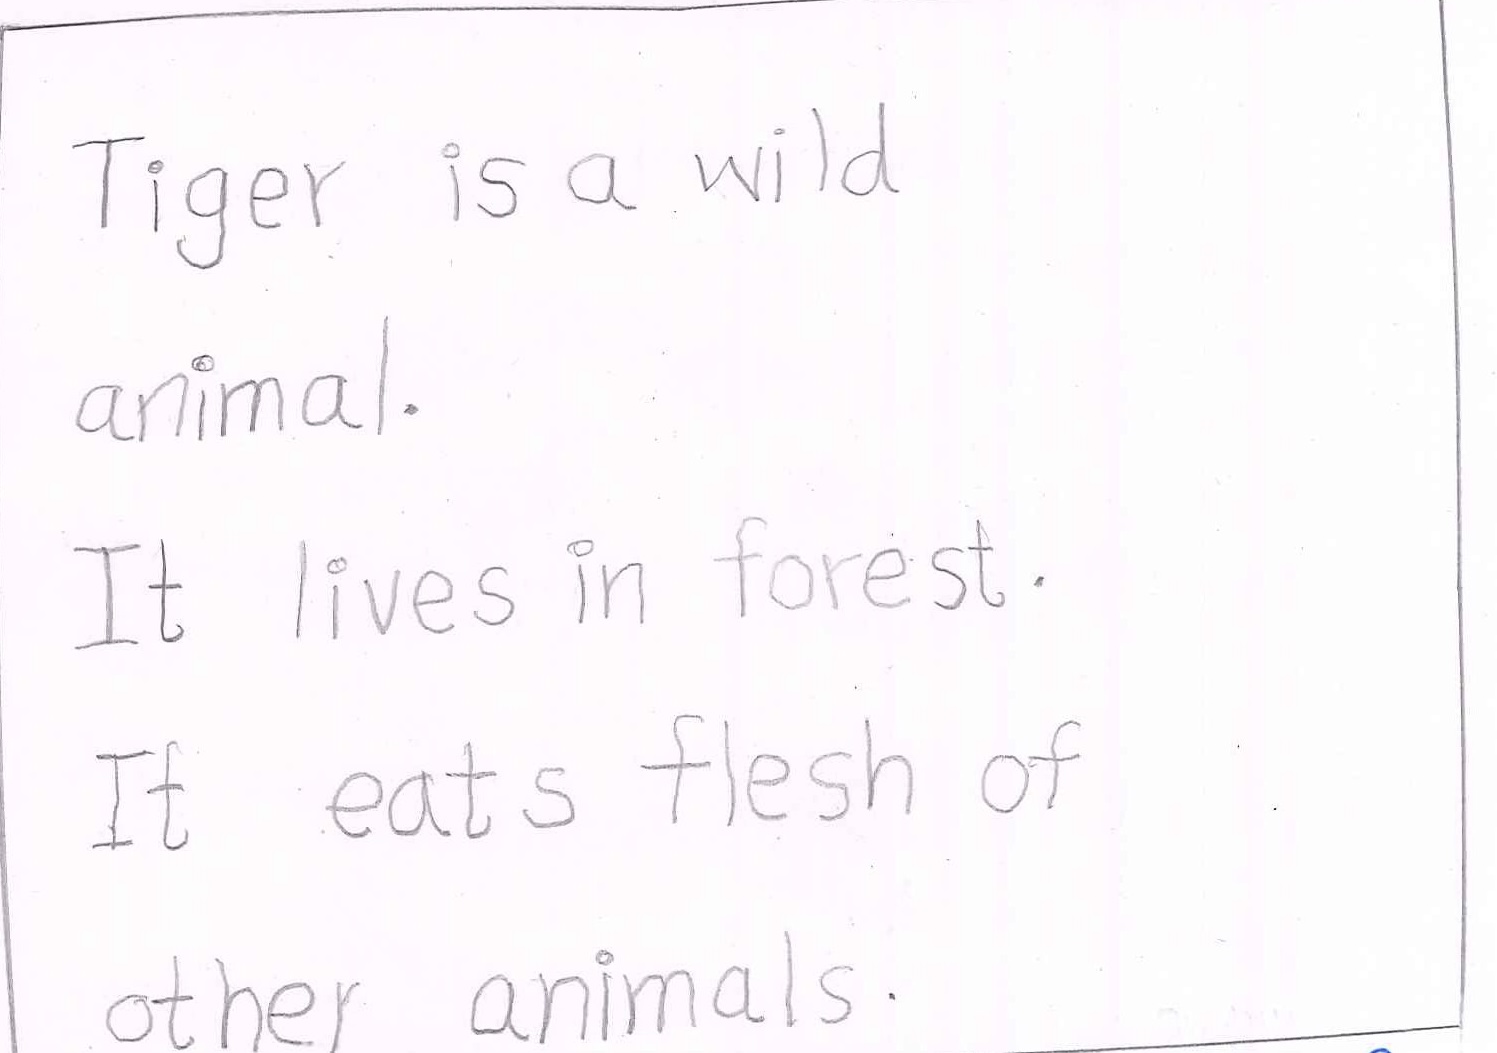 Tiger is a wild
animal.
It lives in forest.
It eats flesh of
other animals.